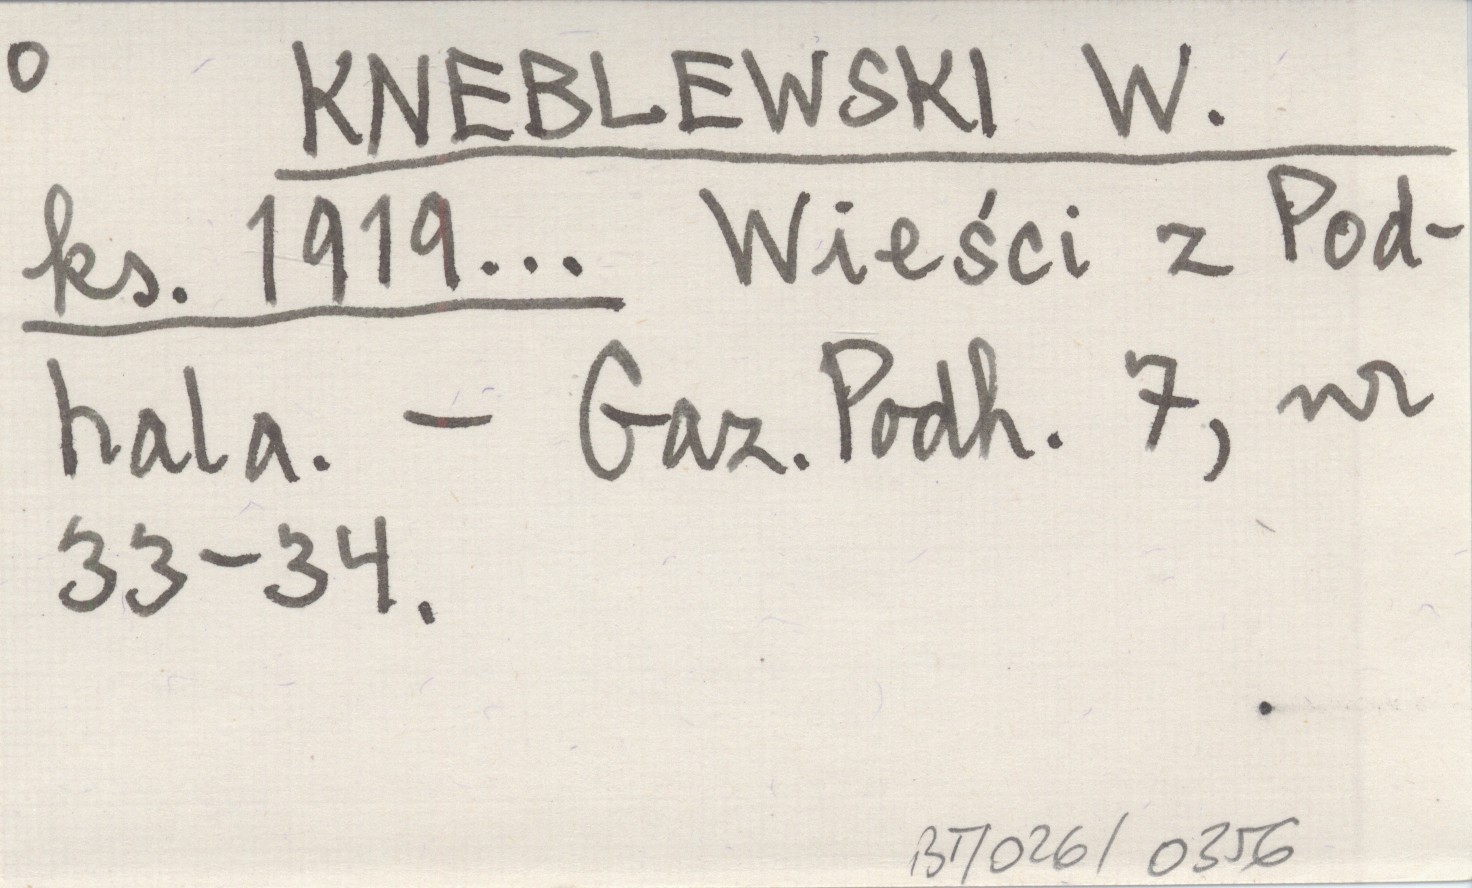 o KNEBLEWSKI W.
ks. 1919... Wieści z Pod-
hala. - Gaz. Podh. 7, nr
33-34.
BT/026/ 0356